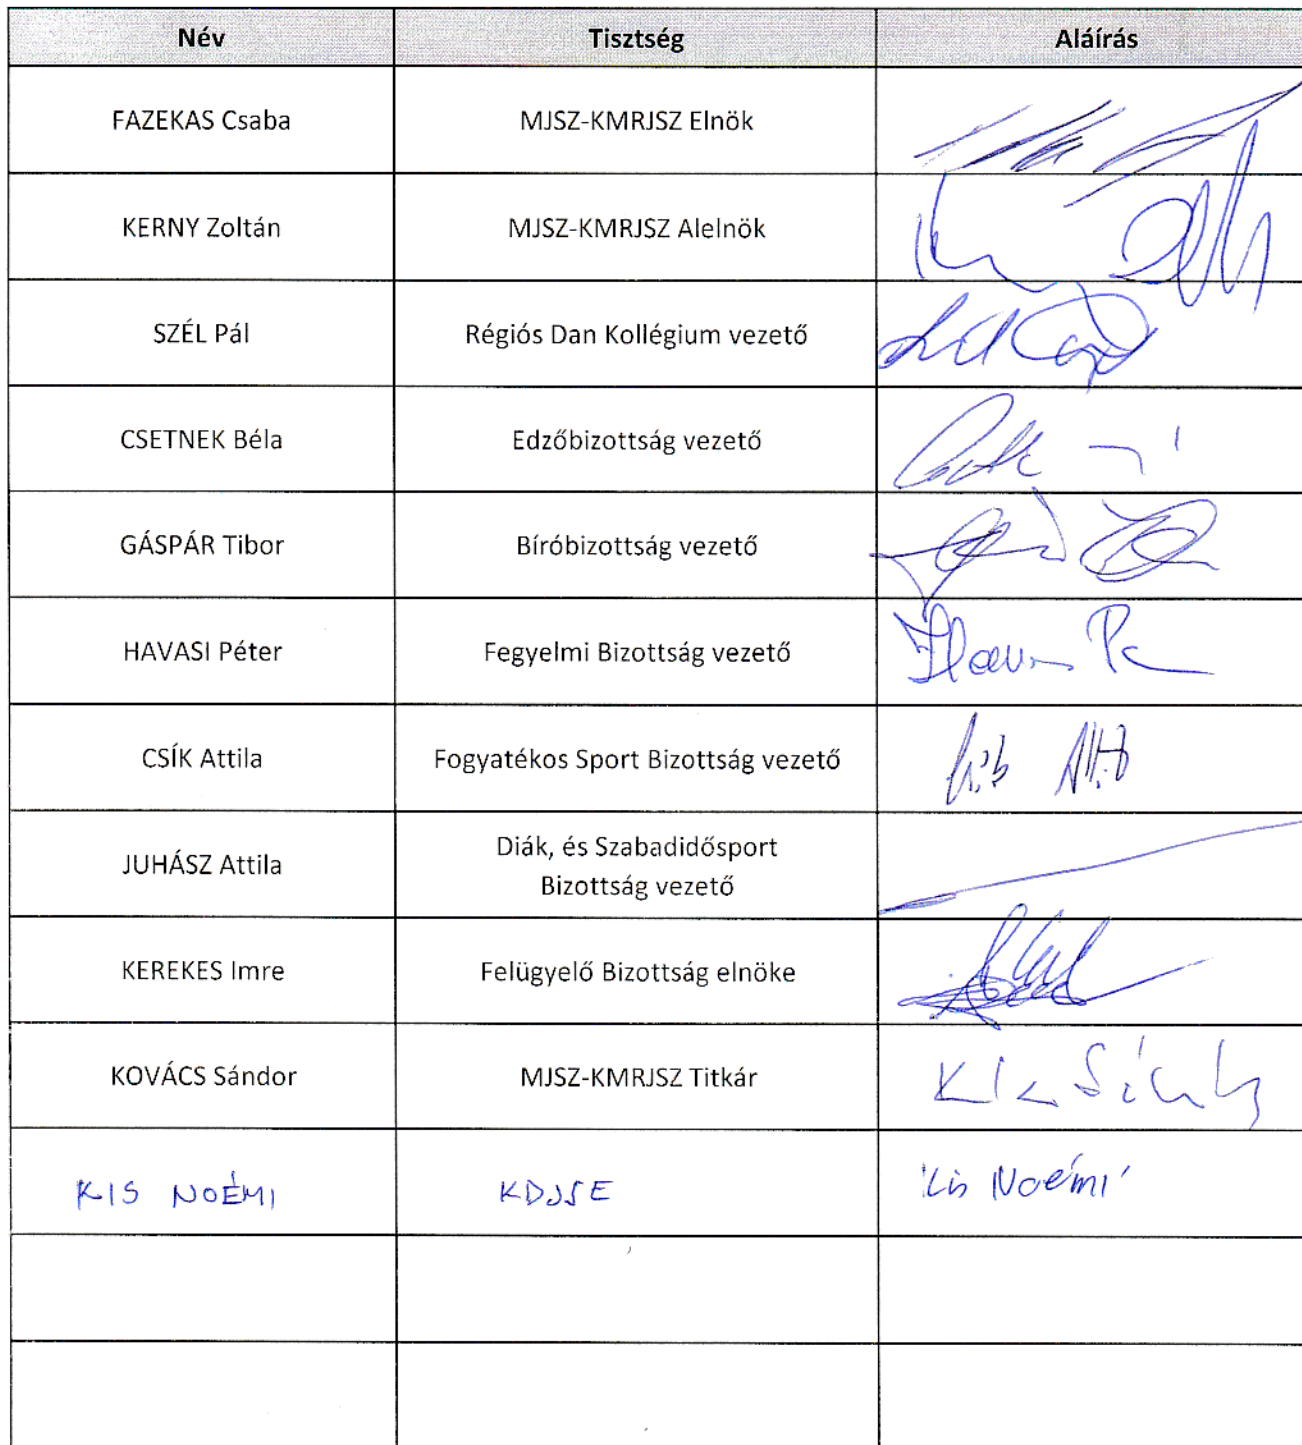 Név Tisztség Aláírás
FAZEKAS Csaba MJSZ-KMRJSZ Elnök
KERNY Zoltán MJSZ-KMRJSZ Alelnök
SZÉL Pál Régiós Dan Kollégium vezető
CSETNEK Béla Edzőbizottság vezető
GÁSPÁR Tibor Bíróbizottság vezető
HAVASI Péter Fegyelmi Bizottság vezető
CSÍK Attila Fogyatékos Sport Bizottság vezető
JUHÁSZ Attila Diák, és Szabadidősport
Bizottság vezető
KEREKES Imre Felügyelő Bizottság elnöke
KOVÁCS Sándor MJSZ-KMRJSZ Titkár
KIS NOÉMI KDJSE Kis Noémi